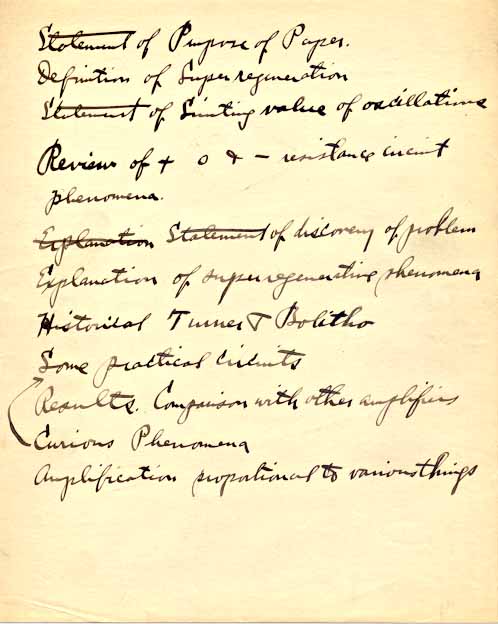 Statement of Purpose of Paper.
Definition of Superregeneration
Statement of Limiting value of oscillations
Review of + o & - resistance circuit
phenomena.
Explanation Statement of discovery of problem
Explanation of superregenerative phenomena
Historical Turner & Bolitho
Some practical circuits
Results. Comparison with other amplifiers
Curious Phenomena
Amplification proportional to various things